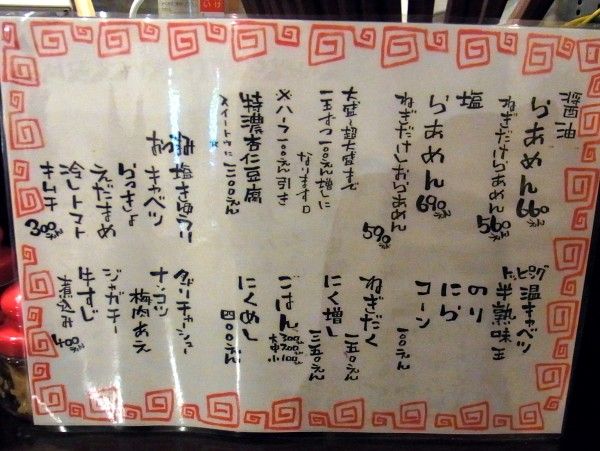 醤油
らあめん 660えん
ねぎだけらあめん 560えん
塩
らあめん 690えん
ねぎだけしおらあめん 590えん
大盛・超大盛まで
一玉ずつ一〇〇えん増しに
なります
※ハーフ一〇〇えん引き
特濃杏仁豆腐
塩きゅうり
キャベツ
らっきょ
えだまめ
冷しトマト
キムチ 300えん
トッピング
温キャベツ
半熟味玉
のり
にら
コーン 一〇〇えん
ねぎだく 一五〇えん
にく増し 二五〇えん
ごはん
にくめし 四〇〇えん
ナンコツ
梅肉あえ
ジャガチー
牛すじ
煮込み 400えん